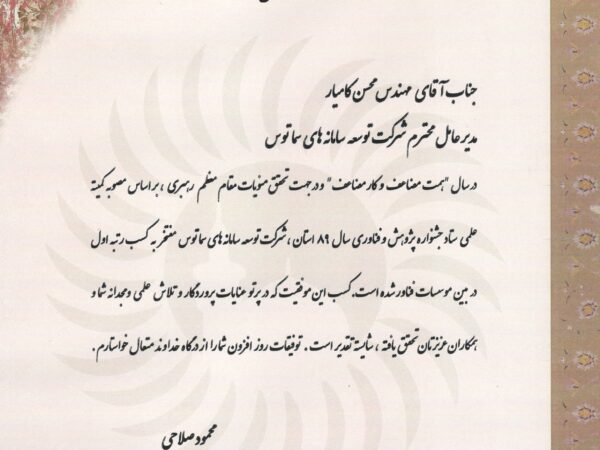 جناب آقای مهندس محسن کامیار
مدیرعامل محترم شرکت توسعه سامانه های سماتوس
در سال "همت مضاعف و کار مضاعف" و در جهت تحقق منویات مقام معظم رهبری ، بر اساس مصوبه کمیته
علمی ستاد جشنواره پژوهش و فناوری سال ۸۹ استان ، شرکت توسعه سامانه های سماتوس مفتخر به کسب رتبه اول
در بین موسسات فناور شده است. کسب این موفقیت که در پرتو عنایات پروردگار و تلاش علمی و مجدانه شما و
همکاران عزیزتان تحقق یافته ، شایسته تقدیر است . توفیقات روز افزون شما را از درگاه خداوند متعال خواستارم .
محمود صلاحی